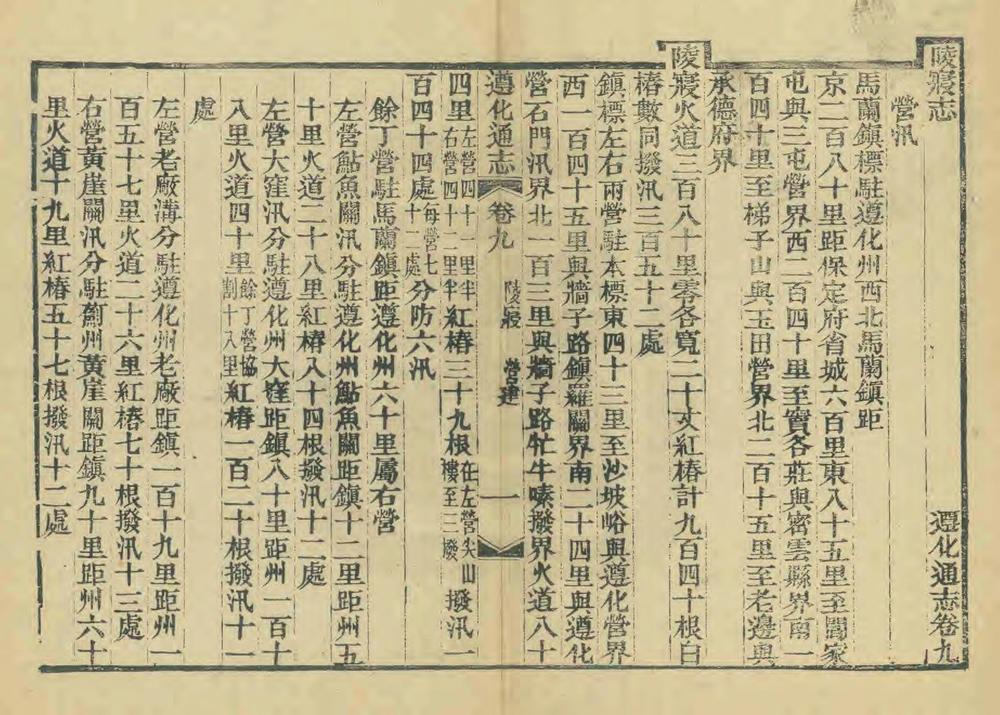 陵寢志　遵化通志卷九
營汛
馬蘭鎮標駐遵化州西北馬蘭鎮距
京二百八十里距保定府省城六百里東八十五里至閻家
屯與三屯營界西二百四十里至寶各莊與密雲縣界南一
百四十里至梯子山與玉田營界北二百十五里至老邊與
承德府界
陵寢火道三百八十里零各寬二十丈紅樁計九百四十根白
樁數同撥汛三百五十二處
鎮標左右兩營駐本標東四十三里至沙坡峪與遵化營界
西一百四十五里與牆子路鎮羅關界南二十四里與遵化
營石門汛界北一百三里與牆子路牤牛嗉撥界火道八十
遵化通志　卷九　陵寢　營建　一
四里左營四十一里半右營四十二里半紅樁三十九根在左營尖山樓至三撥撥汛一
百四十四處每營七十二處分防六汛
餘丁營駐馬蘭鎮距遵化州六十里屬右營
左營鮎魚關汛分駐遵化州鮎魚關距鎮十二里距州五
十里火道二十八里紅樁八十四根撥汛十二處
左營大窪汛分駐遵化州大窪距鎮八十里距州一百十
八里火道四十里餘丁營協割十八里紅樁一百二十根撥汛十一
處
左營老廠溝分駐遵化州老廠距鎮一百十九里距州一
百五十七里火道二十六里紅樁七十根撥汛十三處
右營黃崖關汛分駐薊州黃崖關距鎮九十里距州六十
里火道十九里紅樁五十七根撥汛十二處